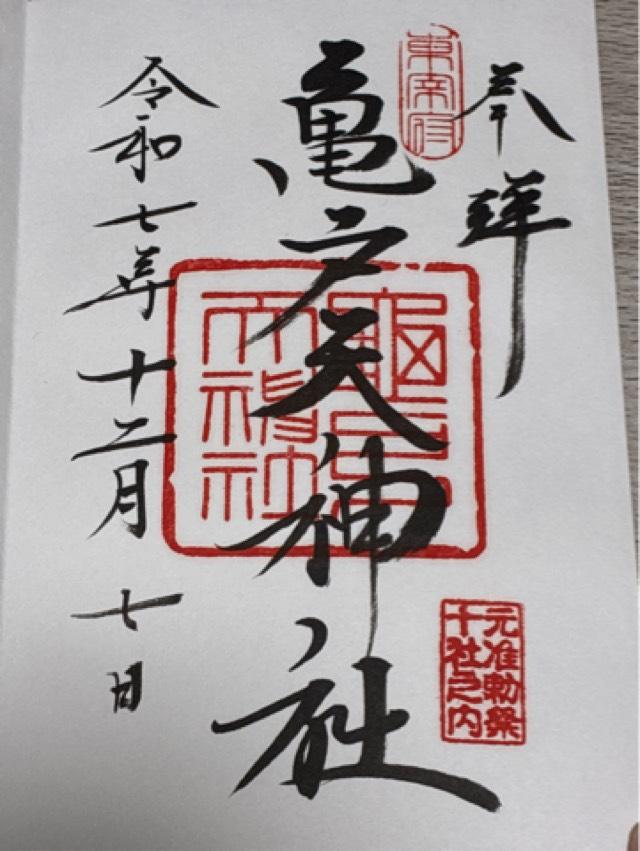 奉拝
東宰府
亀戸天神社
元准勅祭
十社之内
令和七年十二月七日